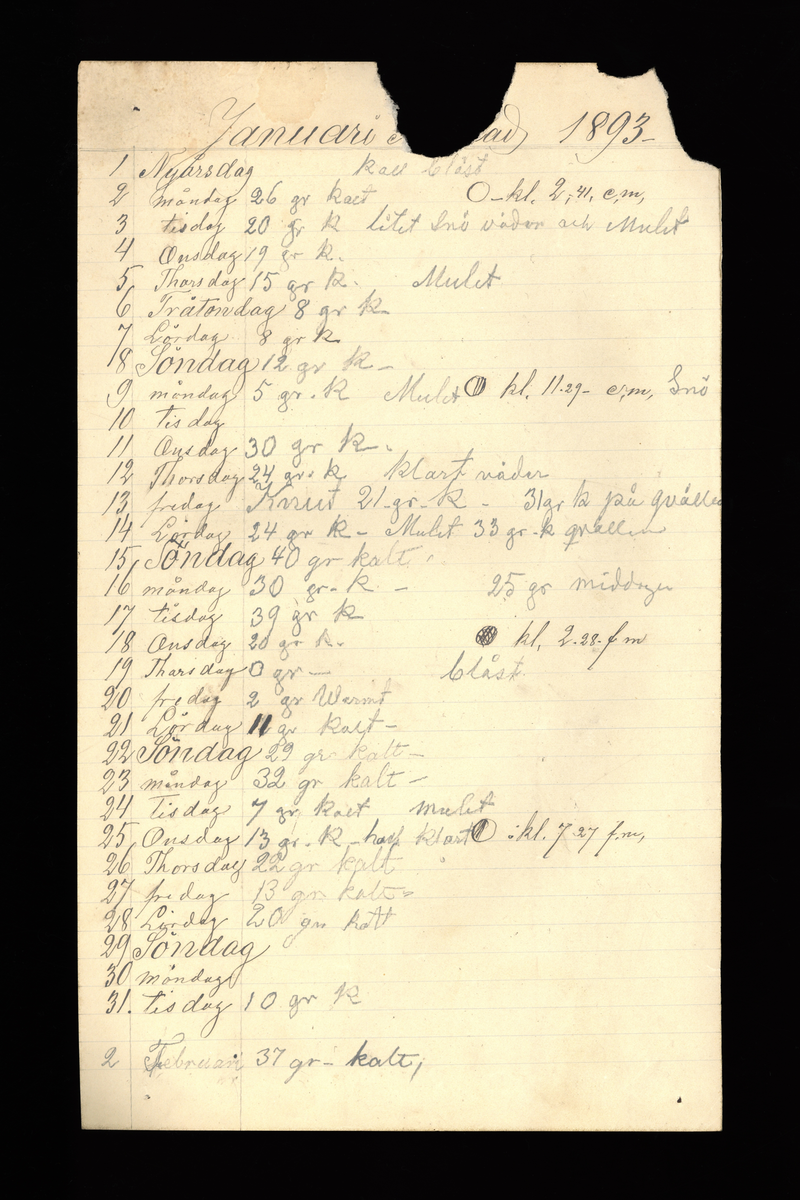 Januari ad 1893-
1 Nyårsdag kall blåst
2 måndag 26 gr kalt -kl. 2,41, e,m,
3 tisdag 20 gr k litet Snö väder och Mulet
4 Onsdag 19 gr k.
5 Thorsdag 15 gr k. Mulet
6 Tråtondag 8 gr k
7 Lördag 8 gr k
8 Söndag 12 gr k -
9 måndag 5 gr. k Mulet kl. 11.29- e,m, Snö
10 tisdag
11 Onsdag 30 gr k.
12 Thorsdag 24 gr. k klart väder
13 fredag Knut 21 gr- k - 31 gr k på qvällen
14 Lördag 24 gr k- Mulet 33 gr-k qvällen
15 Söndag 40 gr kalt
16 måndag 30 gr. k - 25 gr middagen
17 tisdag 39 gr k
18 Onsdag 20 gr k. kl, 2.28- f m
19 Thorsdag 0 gr - blåst
20 fredag 2 gr Warmt
21 Lördag 11 gr kalt-
22 Söndag 29 gr kalt-
23 måndag 32 gr kalt-
24 tisdag 7 gr kalt mulet
25 Onsdag 13 gr. k - half klart kl. 7-27 f,m,
26 Thorsdag 22 gr kalt
27 fredag 13 gr kalt-
28 Lördag 20 gr kalt
29 Söndag
30 måndag
31. tisdag 10 gr k
2 Februari 37 gr- kalt,